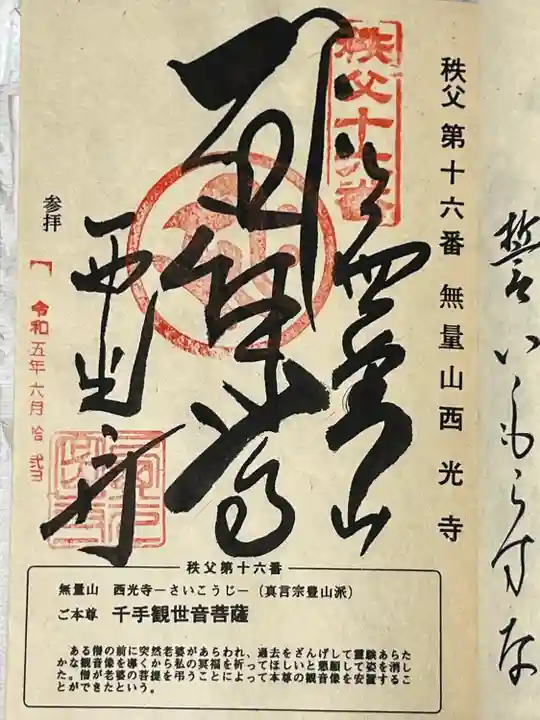 誓いもらすな
秩父 第十六番 無量山西光寺
秩父十六番
無量山
西光寺
参拝
令和五年六月拾弐日
秩父第十六番
無量山 西光寺―さいこうじ―(真言宗豊山派)
ご本尊 千手観世音菩薩
ある僧の前に突然老婆があらわれ、過去をざんげして霊験あらた
かな観音像を導くから私の冥福を祈ってほしいと懇願して姿を消し
た。僧が老婆の菩提を弔うことによって本尊の観音像を安置するこ
とができたという。